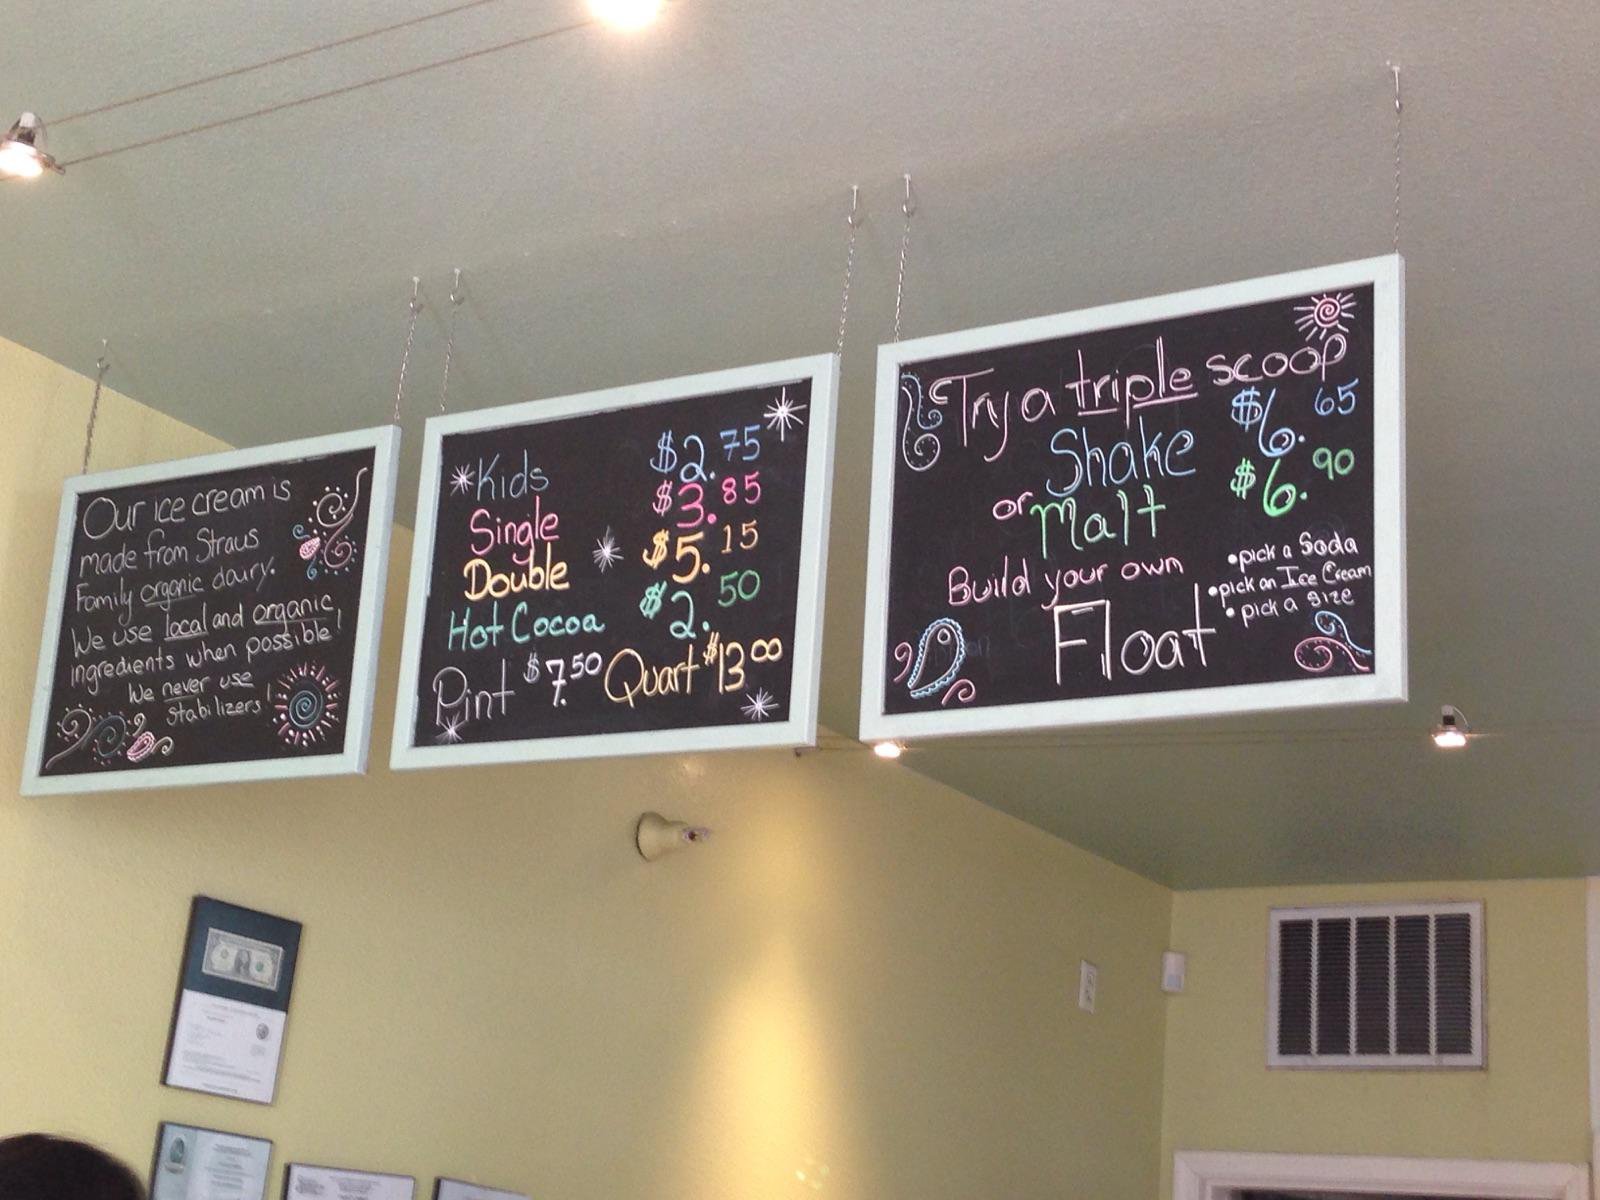 Our ice cream is
made from Straus
Family organic dairy.
We use local and organic
ingredients when possible!
We never use
stabilizers!
Kids $2.75
Single $3.85
Double $5.15
Hot Cocoa $2.50
Pint $7.50 Quart $13.00
Try a triple scoop
Shake $6.65
or Malt $6.90
Build your own
Float
•pick a Soda
•pick an Ice Cream
•pick a size